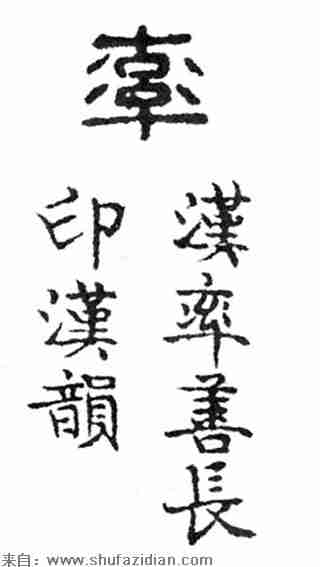 率
漢率善長
印漢韻
来自: www.shufazidian.com